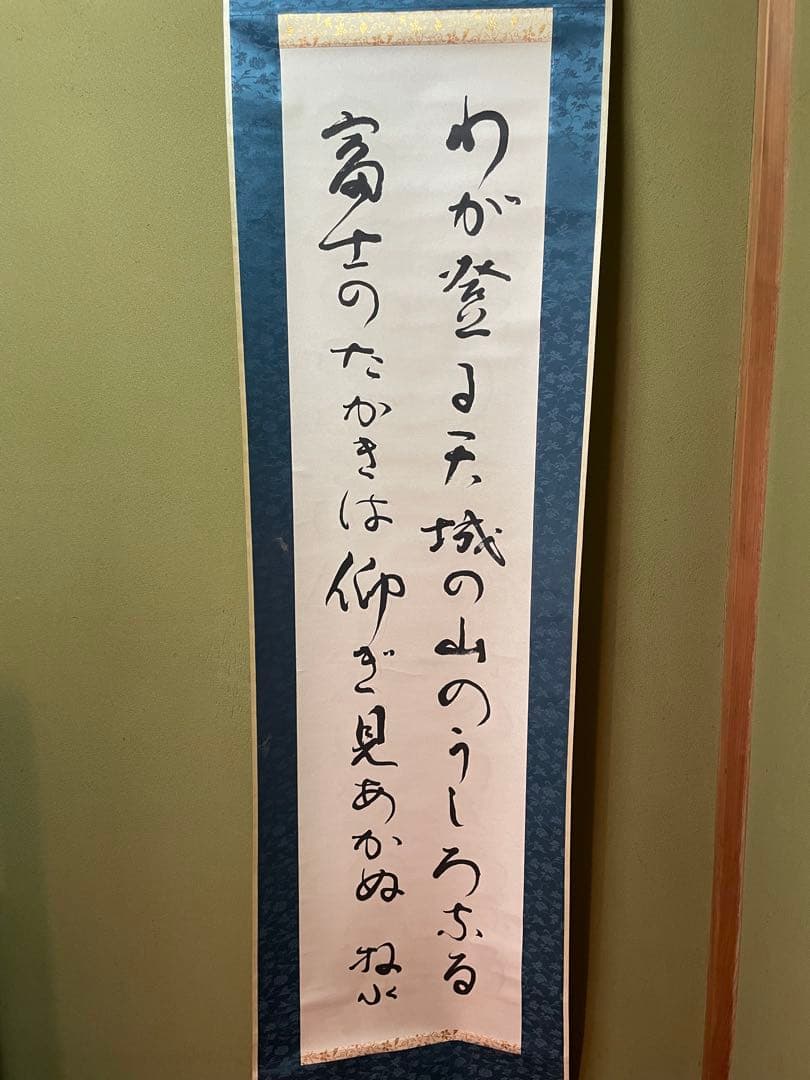 わが登る天城の山のうしろなる
富士のたかきは仰ぎ見あかぬ 牧水